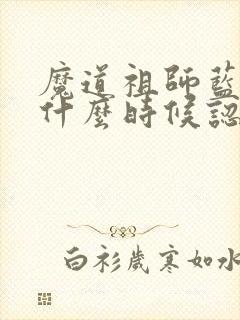 魔道祖師藍
什麼時候認
白衫歲寒如水